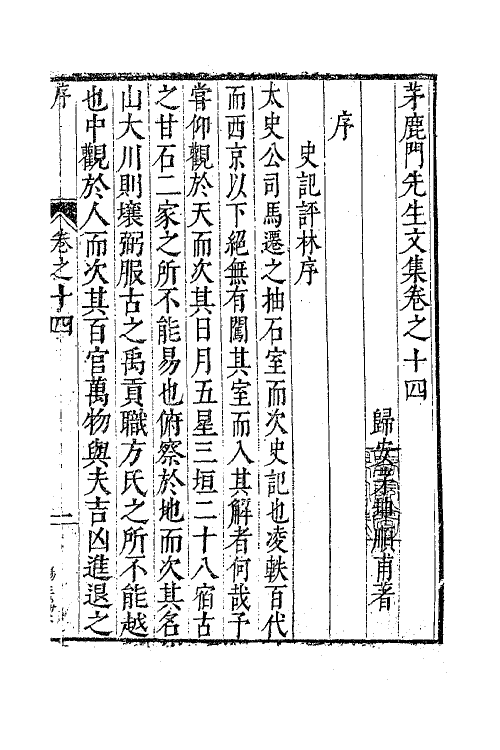 茅鹿門先生文集卷之十四
歸安茅坤順甫著
序
史記評林序
太史公司馬遷之抽石室而次史記也凌軼百代
而西京以下絕無有闖其室而入其解者何哉予
嘗仰觀於天而次其日月五星三垣二十八宿古
之甘石二家之所不能易也俯察於地而次其名
山大川則壤弼服古之禹貢職方氏之所不能越
也中觀於人而次其百官萬物與夫吉凶進退之
序
卷之十四
一